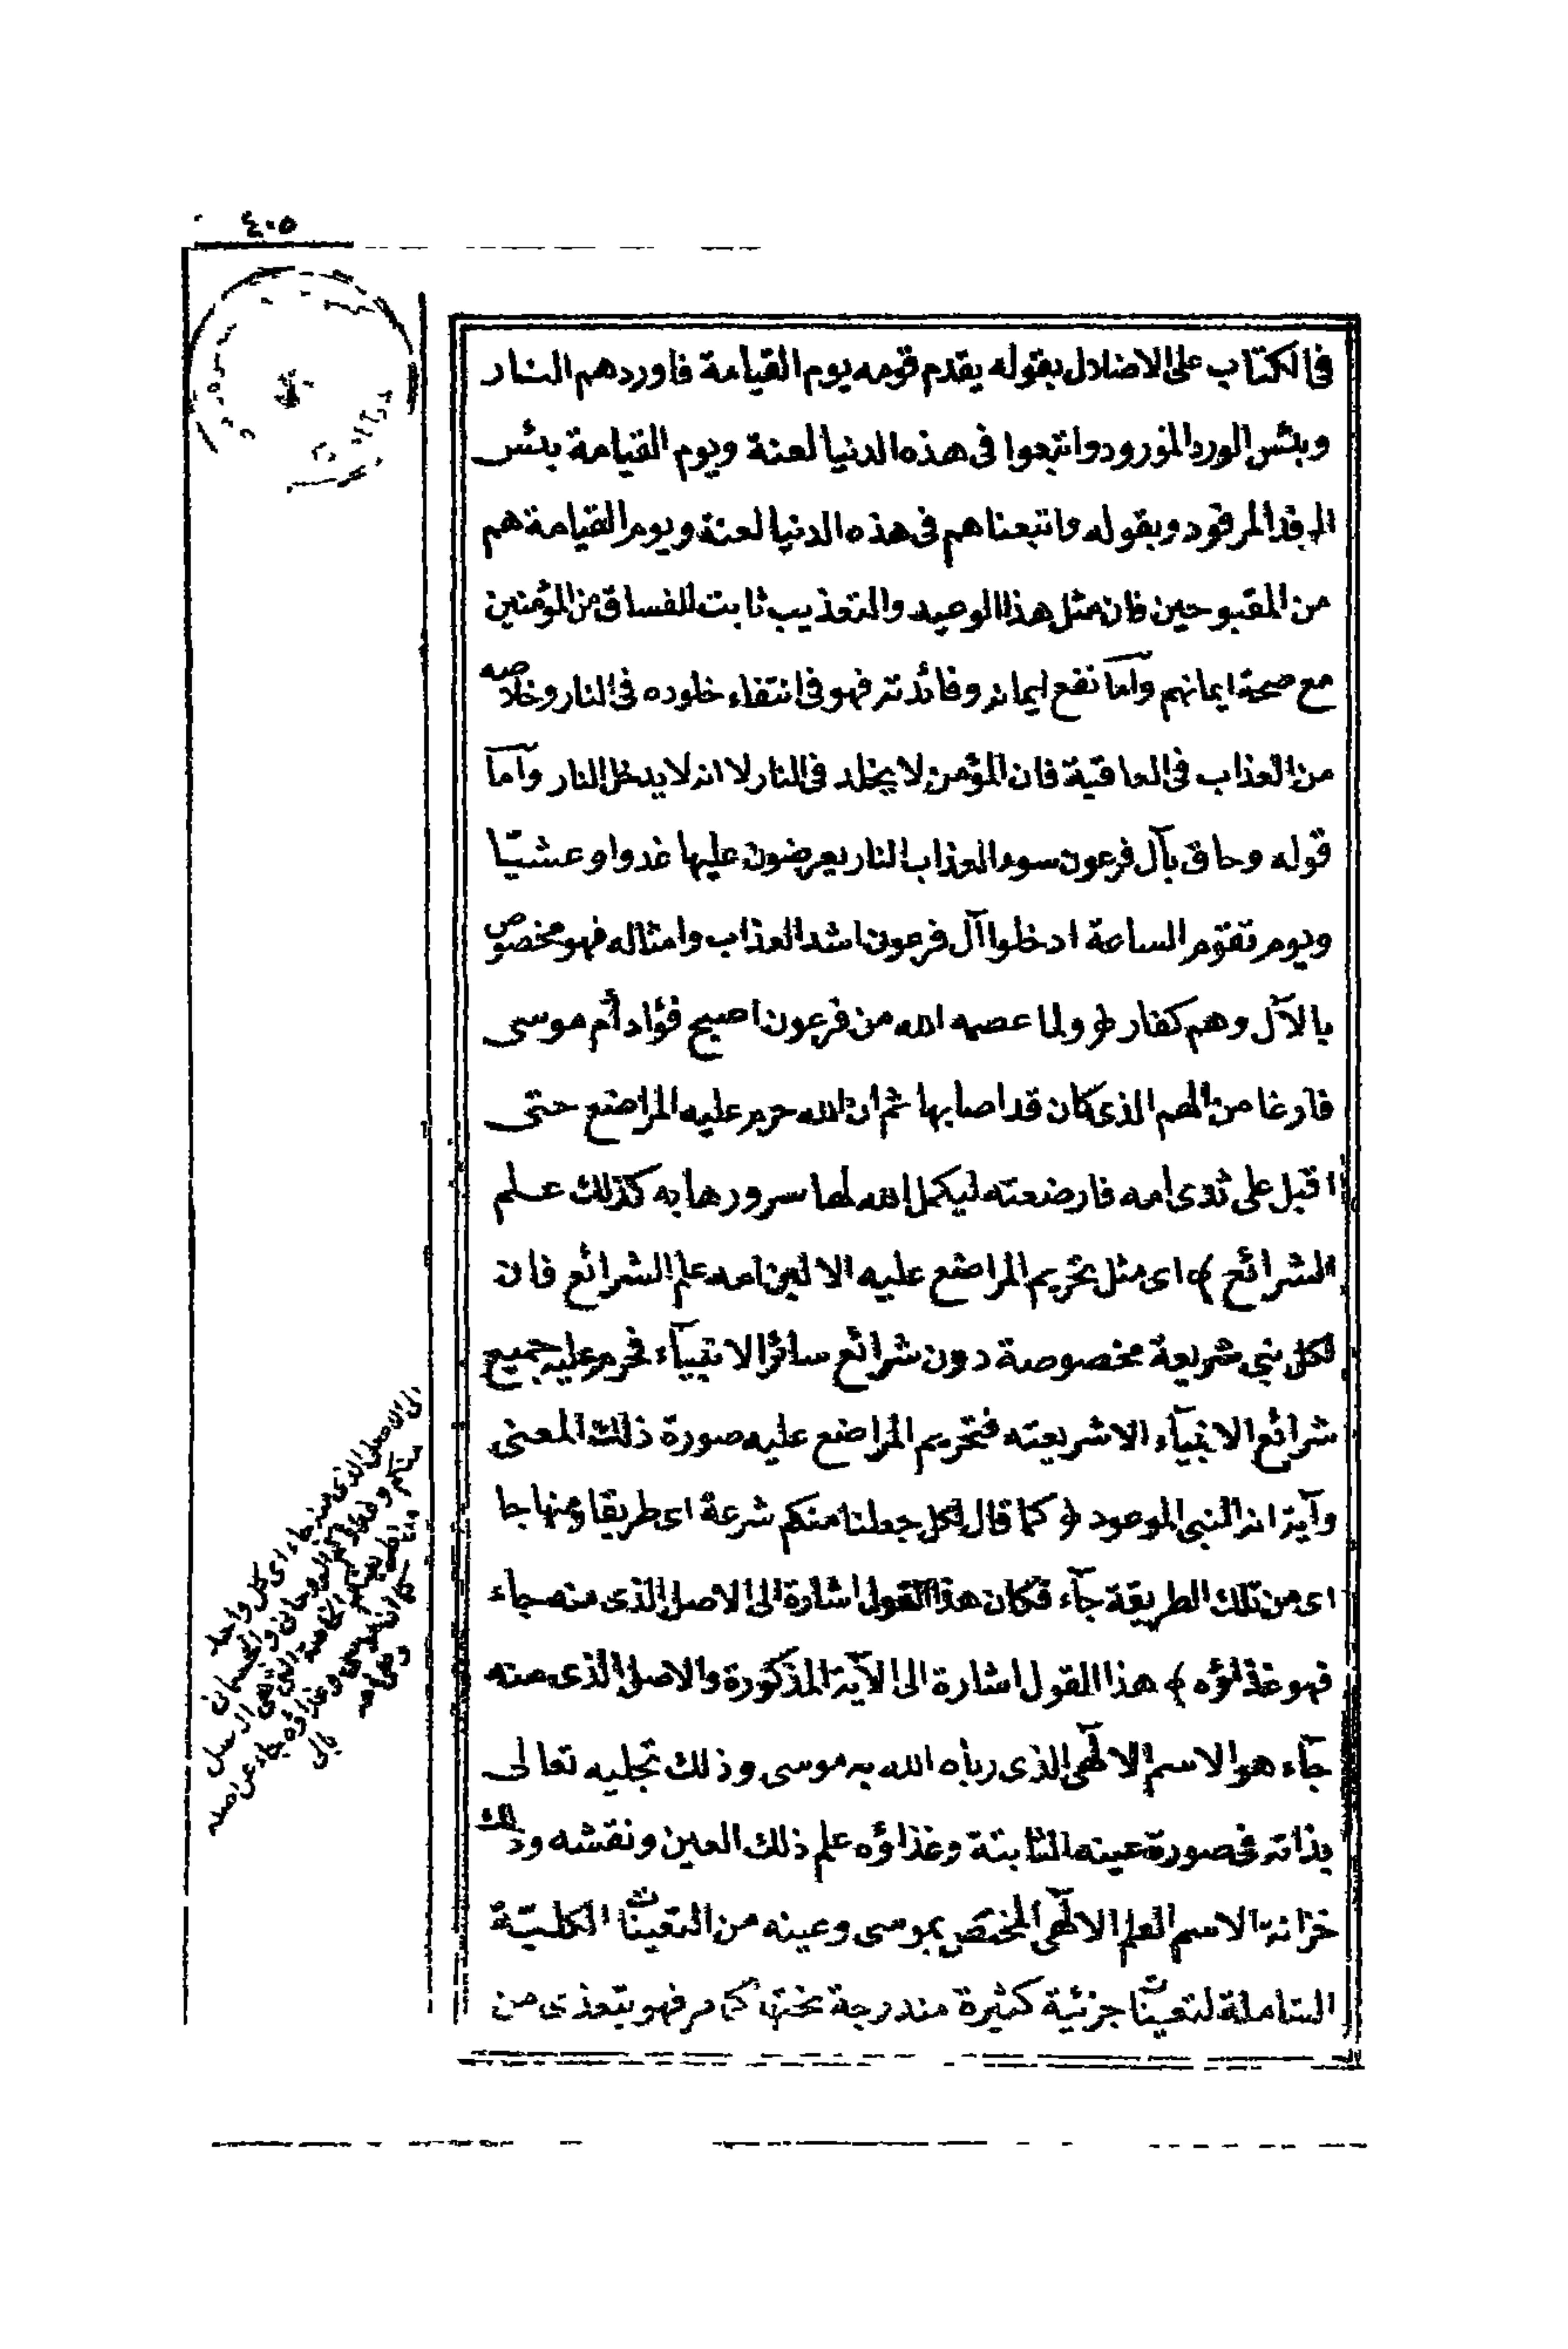 ٤٠٥
فى الكتاب على الاضلال بقوله يقدم قومه يوم القيامة فاوردهم النار
وبئس الورد المورود واتبعوا فى هذه الدنيا لعنة ويوم القيامة بئس
الرفد المرفود وبقوله واتبعناهم فى هذه الدنيا لعنة ويوم القيامة هم
من المقبوحين فان مثل هذا الوعيد والتعذيب ثابت للفساق من المؤمنين
مع صحة ايمانهم وأما نفع ايمانه وفائدته فهو فى انتفاء خلوده فى النار وخلاصه
من العذاب فى العاقبة فان المؤمن لا يخلد فى النار لا انه لا يدخل النار وأما
قوله وحاق بآل فرعون سوء العذاب النار يعرضون عليها غدوا وعشيّا
ويوم تقوم الساعة ادخلوا آل فرعون اشد العذاب وامثاله فهو مخصوص
بالآل وهم كفار ﴿ ولما عصمه الله من فرعون اصبح فؤاد أم موسى
فارغا من الهم الذى كان قد اصابها ثم ان الله حرم عليه المراضع حتى
اقبل على ثدى امه فارضعته ليكمل الله لها سرورها به كذلك علم
الشرائع ﴾ اى مثل تحريم المراضع عليه الا لبن امه علم الشرائع فان
لكل نبى شريعة مخصوصة دون شرائع سائر الانبيآء فحرم عليه جميع
شرائع الانبيآء الا شريعته فتحريم المراضع عليه صورة ذلك المعنى
وآية انه النبى الموعود ﴿ كما قال لكل جعلنا منكم شرعة اى طريقا ومنهاجا
اى من تلك الطريقة جآء فكان هذا القول اشارة الى الاصل الذى منه جاء
فهو غذاؤه ﴾ هذا القول اشارة الى الآية المذكورة والاصل الذى منه
جآء هو الاسم الالهى الذى رباه الله به موسى وذلك تجليه تعالى
بذاته فى صورة عينه الثابتة وغذاؤه علم ذلك العين ونقشه وذلك
خزانة الاسم العلم الالهى المختص بموسى وعينه من التعينات الكليّة
الشاملة لتعينات جزئية كثيرة مندرجة تحتها كما مر فهو يتغذى من